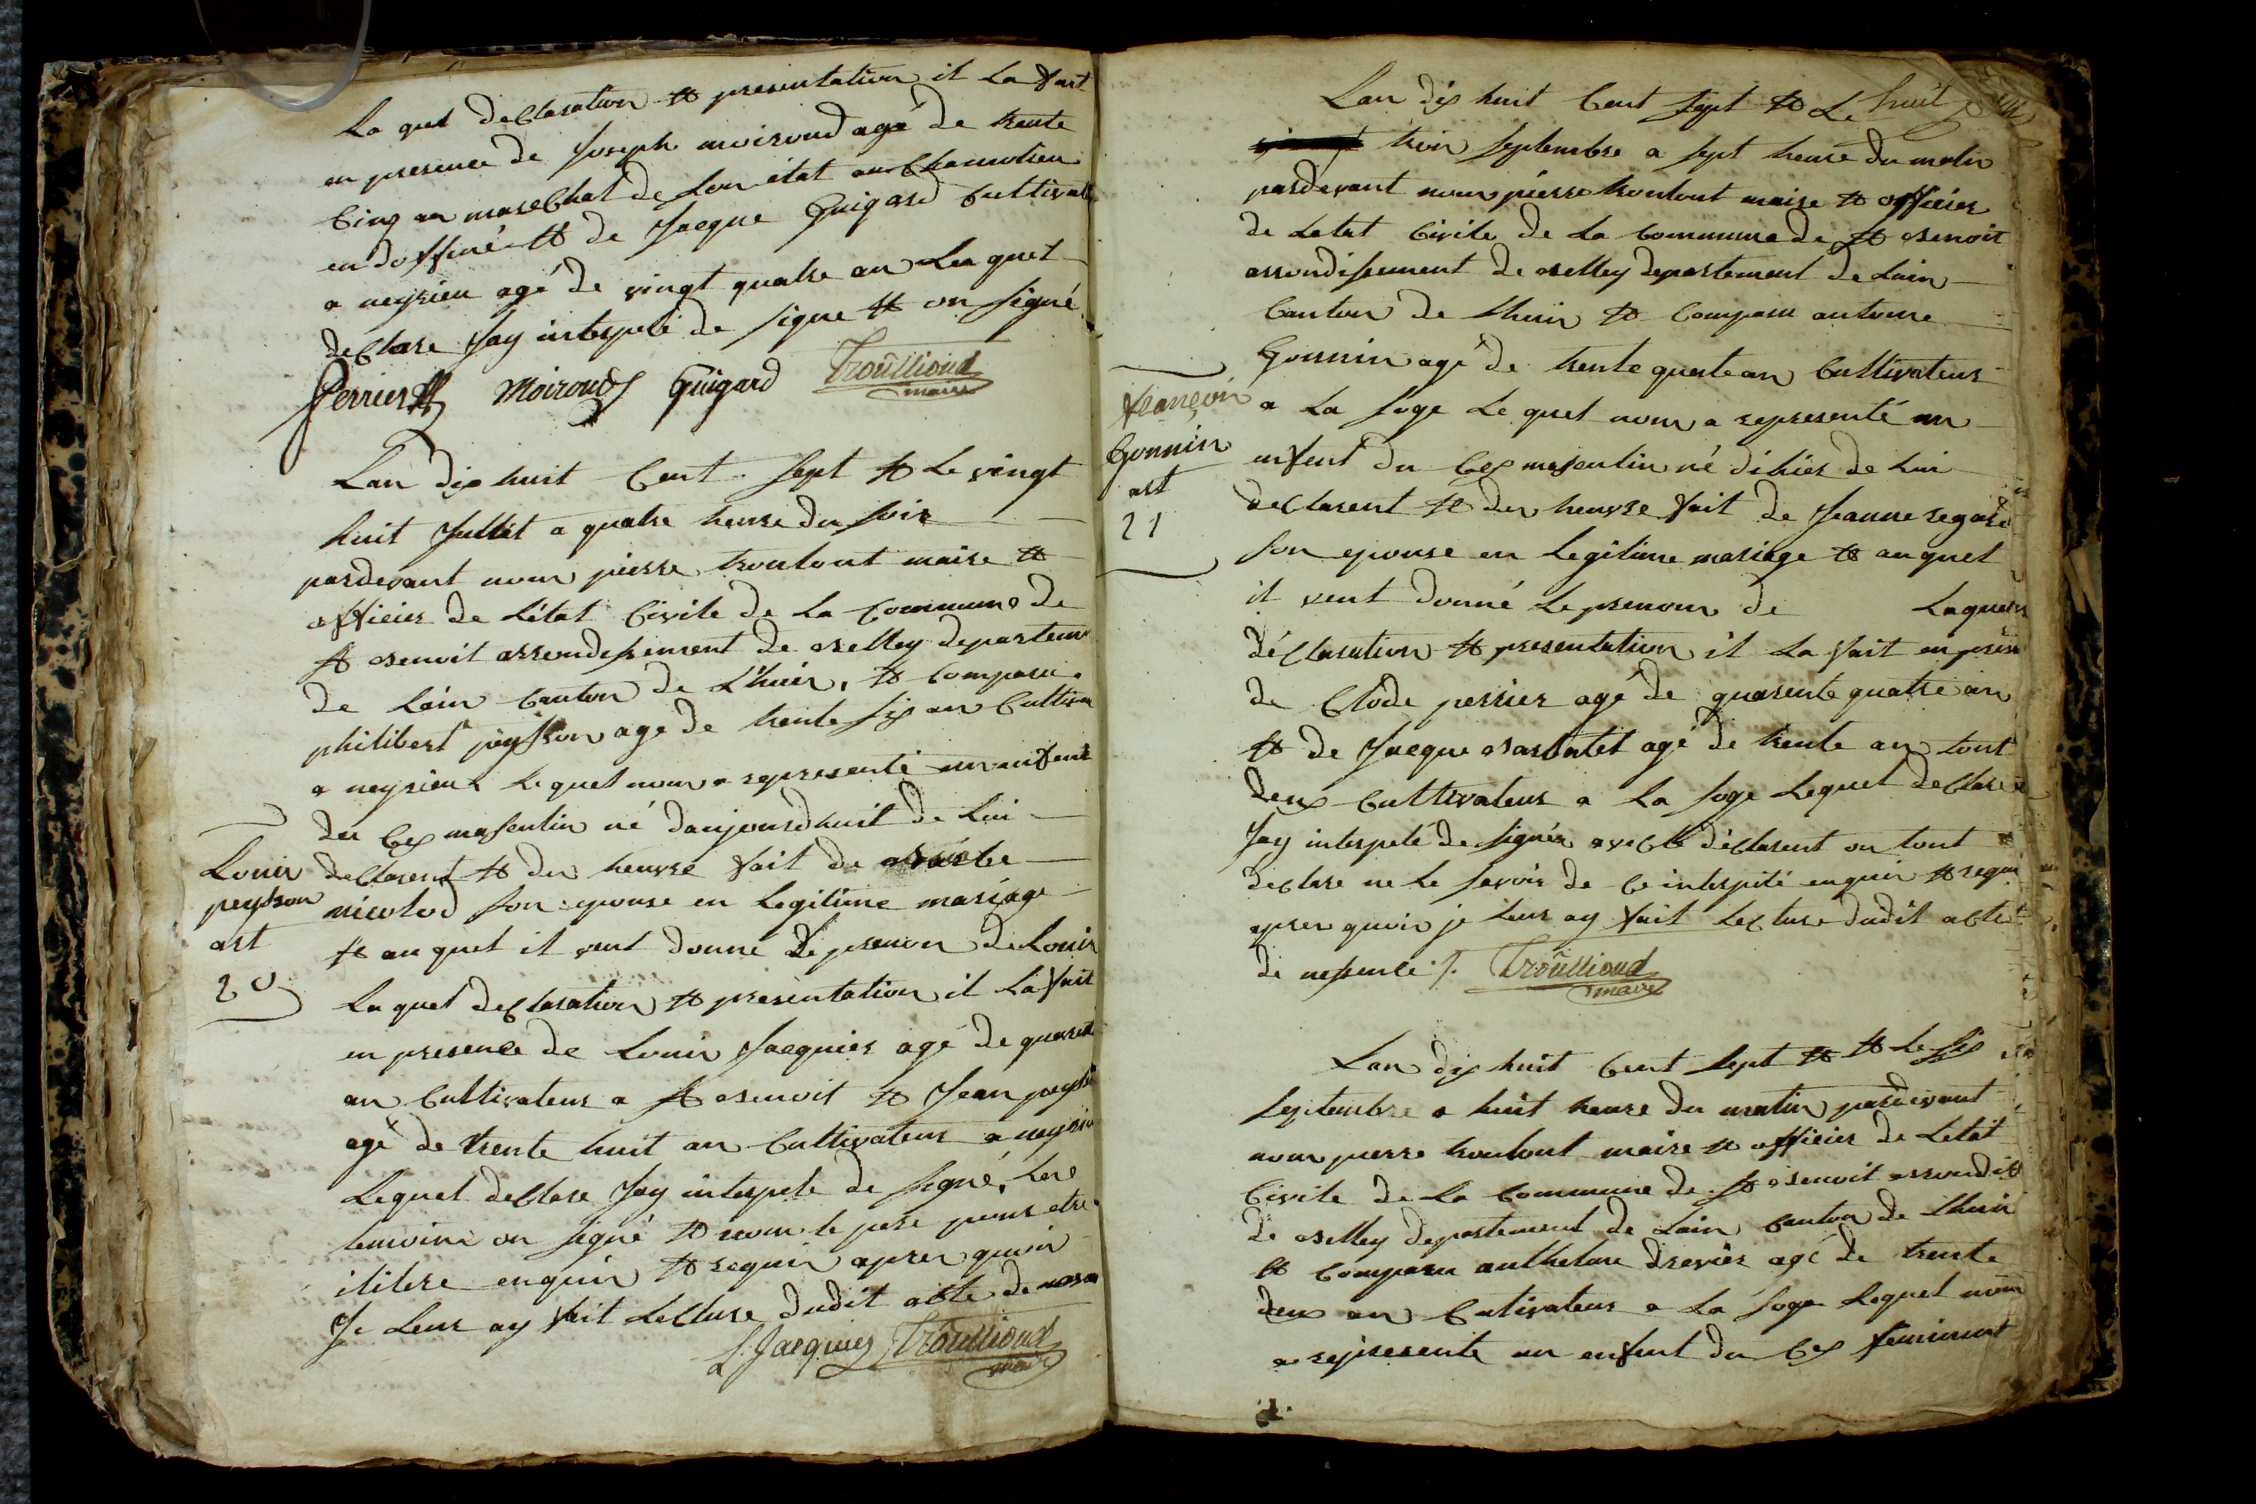 La quel declaration et presentation il La fait
en presence de Joseph moiroud agé de trente
Cinq an marechal de Son état au Chamotieu
en doffiné et de Jacque Guigard Cultivat
a neyrieu agé de vingt quatre an Les quel
declare Jay interpelé de Signe et on Signé
Perrier Moiroud Guigard Troullioud
maire
Lan dix huit Cent Sept et Le vingt
huit Jullet a quatre heure du Soir
pardevant nous pierre troulout maire et
officier de L'état Civile de La Commune de
St Benoit arrondissement de Belley departem
de L'ain Canton de L'huis, et Comparu
philibert peysson age de trente Six an Cultiva
a neyrieux Le quel nous a representé un enfant
du Cex masculin né d'aujourd'huit de Lui
Louis
peysson
art
20
declarent et des heuvre fait de
nicolod Son epouse en Legitime mariage
et au quel il veut donné Le prenon de Louis
La quel declaration et presentation il La fait
en presence de Louis Jacquier agé de quarent
an Cultivateur a St Benoit et Jean peysson
agé de trente huit an Cultivateur a neyrieu
Lequel declare Jay interpele de Signé, Les
temoins on Signé et nom le pere pour etre
ilitere enquis et requis apres quoi
Je Leur ay fait Lecture dudit acte de
L. Jacquier Troullioud
maire
Lan dix huit Cent Sept et Le huit
trois Septembre a Sept heure du matin
pardevant nous pierre troulout maire et officier
de Letat Civile de La Commune de St Benoit
arrondissement de Belley departement de Lain
Canton de Lhuis et Comparu antoine
Gonnin agé de trente quatre an Cultivateur
françois
Gonnin
art
21
a La Soge Le quel nous a representé un
enfent du Cex masculin né d'ihier de Lui
declarent et des heuvre fait de Jeanne regard
Son epouse en Legitime mariage et au quel
il veut donné Le prenom de Laquel
déclaration et presentation il La fait en presen
de Clode perrier agé de quarente quatre an
et de Jacque agé de trente an tout
deux Cultivateur a La Soge Lequel declare
Jay interpelé de Signér avec le déclarent on tout
declare ne Le Savoir de Ce interpité enquis et requi
apres quoi je Leur ay fait Lecture dudit acte
de nessence ./. Troullioud
maire
Lan dix huit Cent Sept et et Le Six
Septembre a huit heure du matin pardevant
nous pierre troulout maire et officier de Letat
Civile de La Commune de St Benoit arrondiss
de Belley departement de Lain Canton de Lhuis
et Comparu anthelme drevier agé de trente
deux an Cultivateur a La Soge Lequel nous
a representé un enfent du Cex feminint